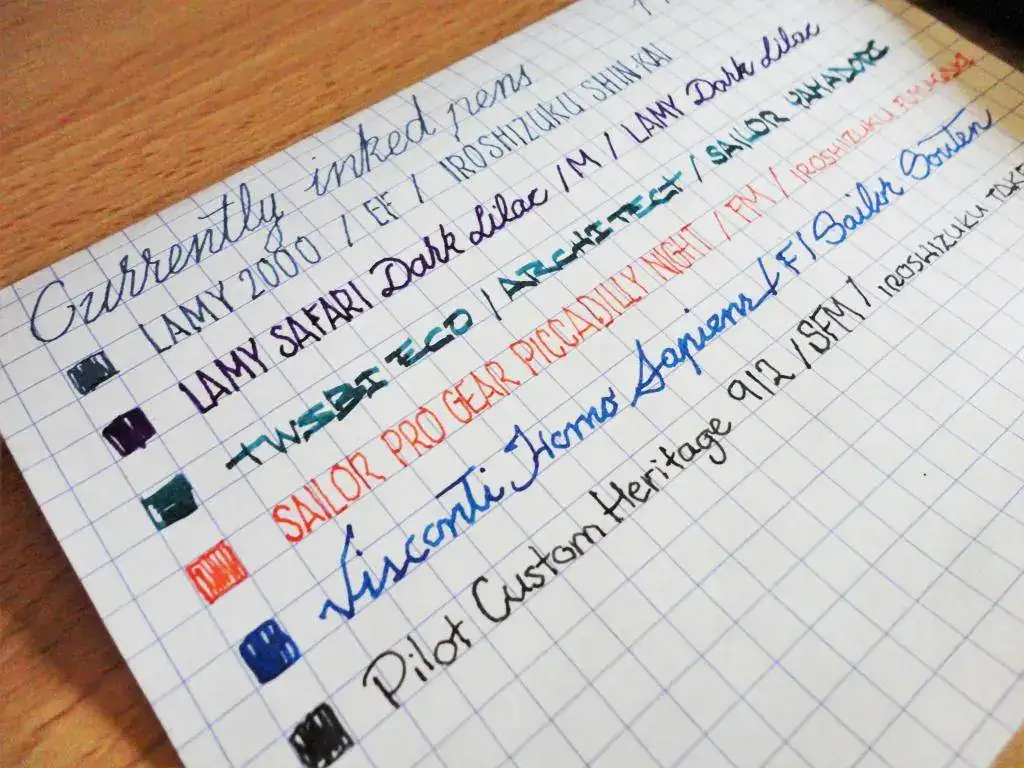 Currently inked pens
LAMY 2000 / EF / IROSHIZUKU SHIN KAI
LAMY SAFARI Dark Lilac / M / LAMY Dark Lilac
TWSBI ECO / ARCHITECT / SAILOR YAMADORI
SAILOR PRO GEAR PICCADILLY NIGHT / FM / IROSHIZUKU
Visconti Homo Sapiens / F / Sailor Souten
Pilot Custom Heritage 912 / SFM / IROSHIZUKU TAKE